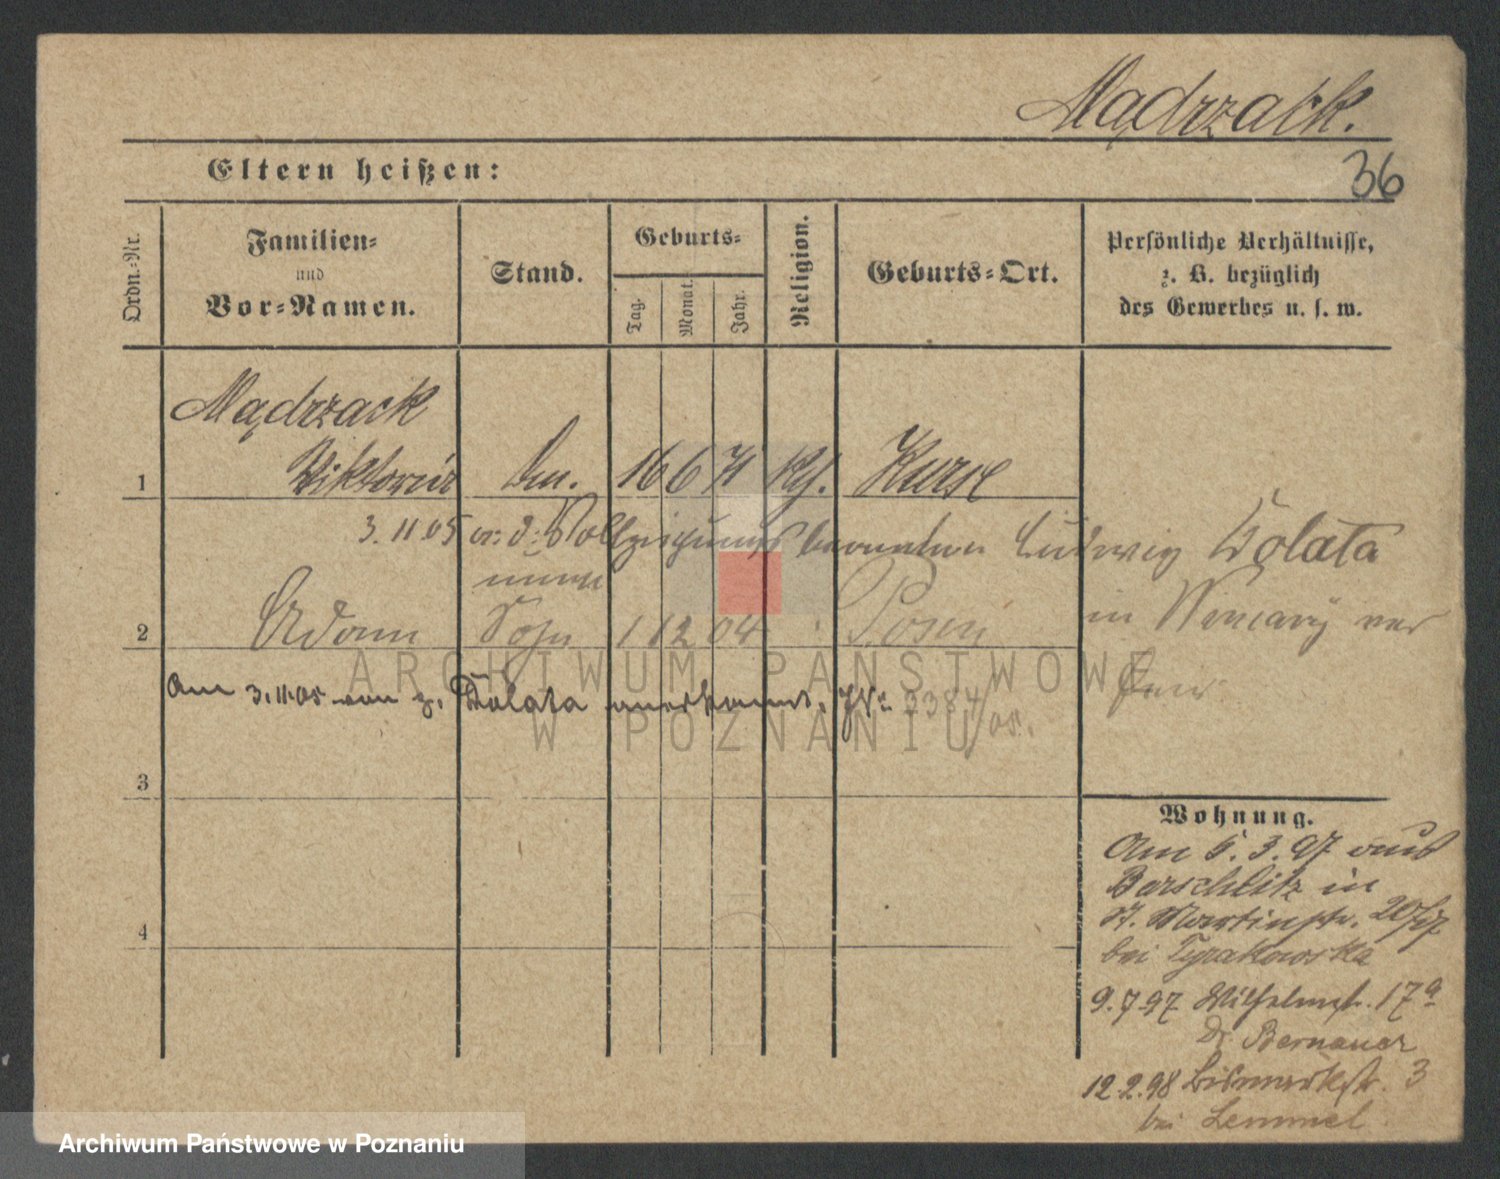 Mądrzack.
36
Eltern heißen:
Ordn.-Nr.
Familien-
und
Vor-Namen.
Stand.
Geburts-
Tag.
Monat.
Jahr.
Religion.
Geburts-Ort.
Persönliche Verhältnisse,
z. B. bezüglich
des Gewerbes u. s. w.
Mądrzack
1 Viktoria 16 6 71 Kurse
3.11.05 Ludwig Dolata
2 Adam Sohn 1 12 04 Posen
in
Am 3.11.05 von p. Dolata anerkannt. 3384/05.
3
4
Wohnung.
Am 5.3.97 aus
Borschlitz in
St. Martinstr. 20
bei Tyrakowska
9.7.97 Wilhelmstr. 17a
Dr. Bernauer
12.2.98 Bismarkstr. 3
bei Lemmel
ARCHIWUM PAŃSTWOWE
W POZNANIU
Archiwum Państwowe w Poznaniu